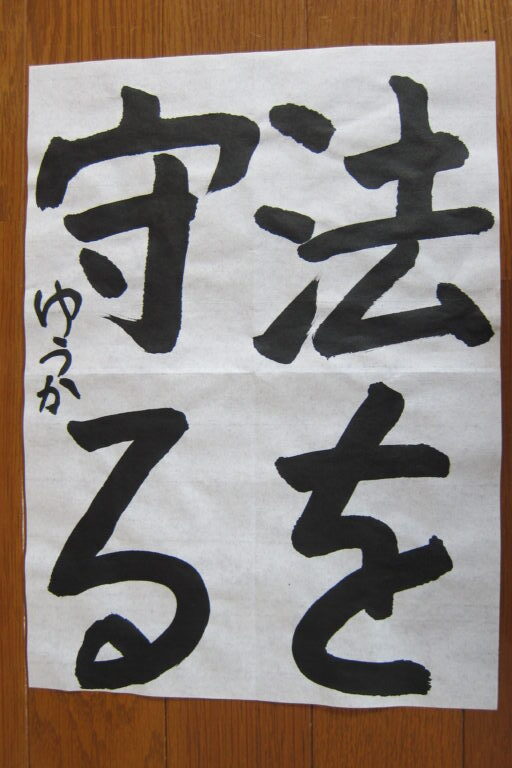 法を
守る
ゆうか